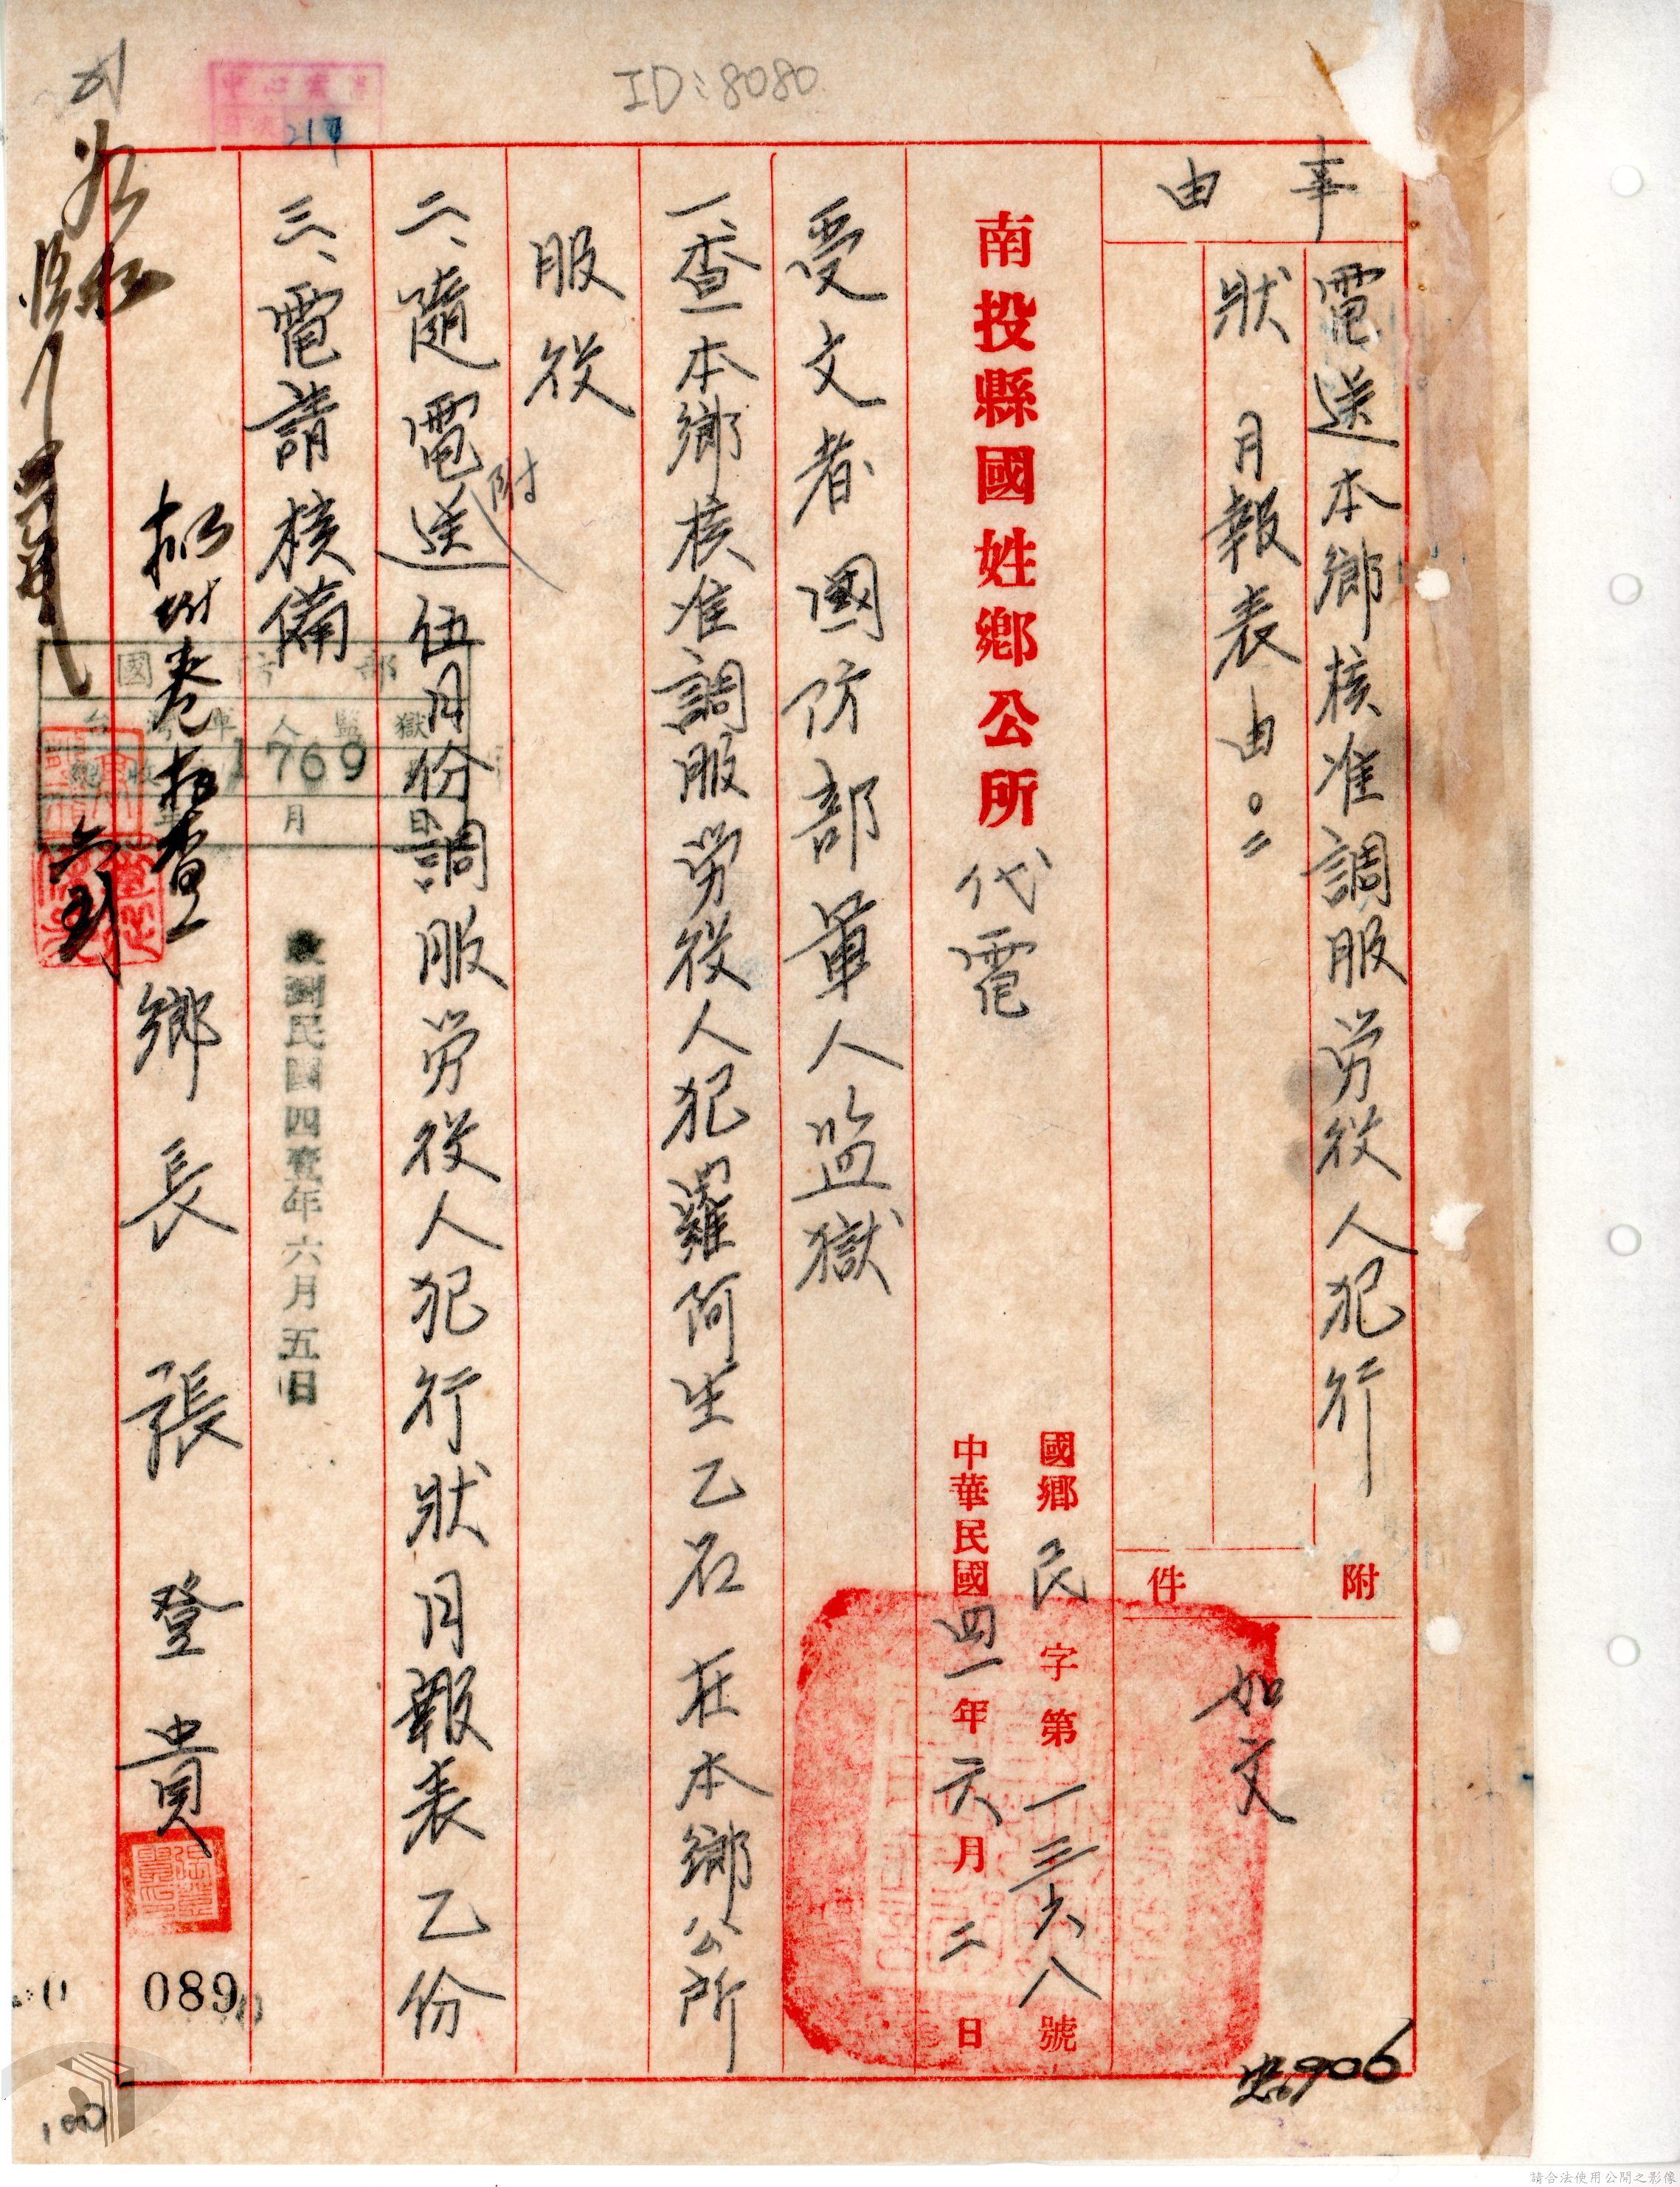 ID:8080
事由
電送本鄉核准調服劳役人犯行
狀月報表由。
附件
如文
南投縣國姓鄉公所代電
國鄉民字第一三六八號
中華民國四一年六月二日
受文者國防部軍人监獄
一、查本鄉核准調服勞役人犯羅阿生乙名在本鄉公所
服役
二、隨電送附伍月份調服劳役人犯行狀月報表乙份
三、電請核備
鄉長張登貴
國防部
台灣軍人監獄
總收 1769
年月日
收到民國四壹年六月五日
拟附卷拟查
217
089
906
100
請合法使用公開之影像